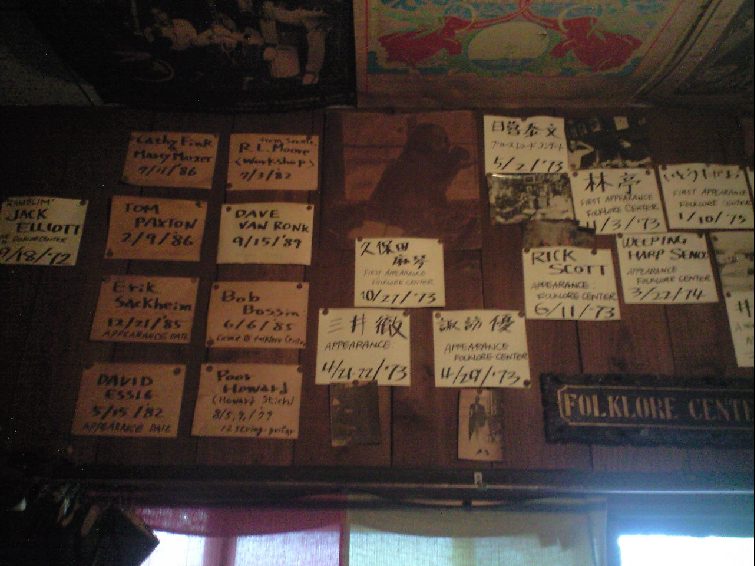 JACK
ELLIOTT
Cathy Fink
&
Marcy Marxer
7/11/'86
R.L. Moore
(Workshop)
7/3/'82
TOM
PAXTON
2/9/'86
DAVE
VAN RONK
9/15/'89
Erik
Sackheim
12/21/'85
APPEARANCE DATE
Bob
Bossin
6/6/'85
DAVID
ESSIG
5/15/'82
APPEARANCE DATE
Poor
Howard
12 string guitar
久保田
麻琴
FIRST APPEARANCE
FOLKLORE CENTER
10/27/'73
三井 徹
APPEARANCE
4/21-22/'73
諏訪 優
APPEARANCE
FOLKLORE CENTER
4/29/'73
5/2/'73
林 亭
FIRST APPEARANCE
FOLKLORE CENTER
11/3/'73
FIRST APPEARANCE
FOLKLORE CENTER
1/10/'75
RICK
SCOTT
APPEARANCE
FOLKLORE CENTER
6/11/'73
WEEPING
HARP
APPEARANCE
FOLKLORE CENTER
3/22/'74
FOLKLORE